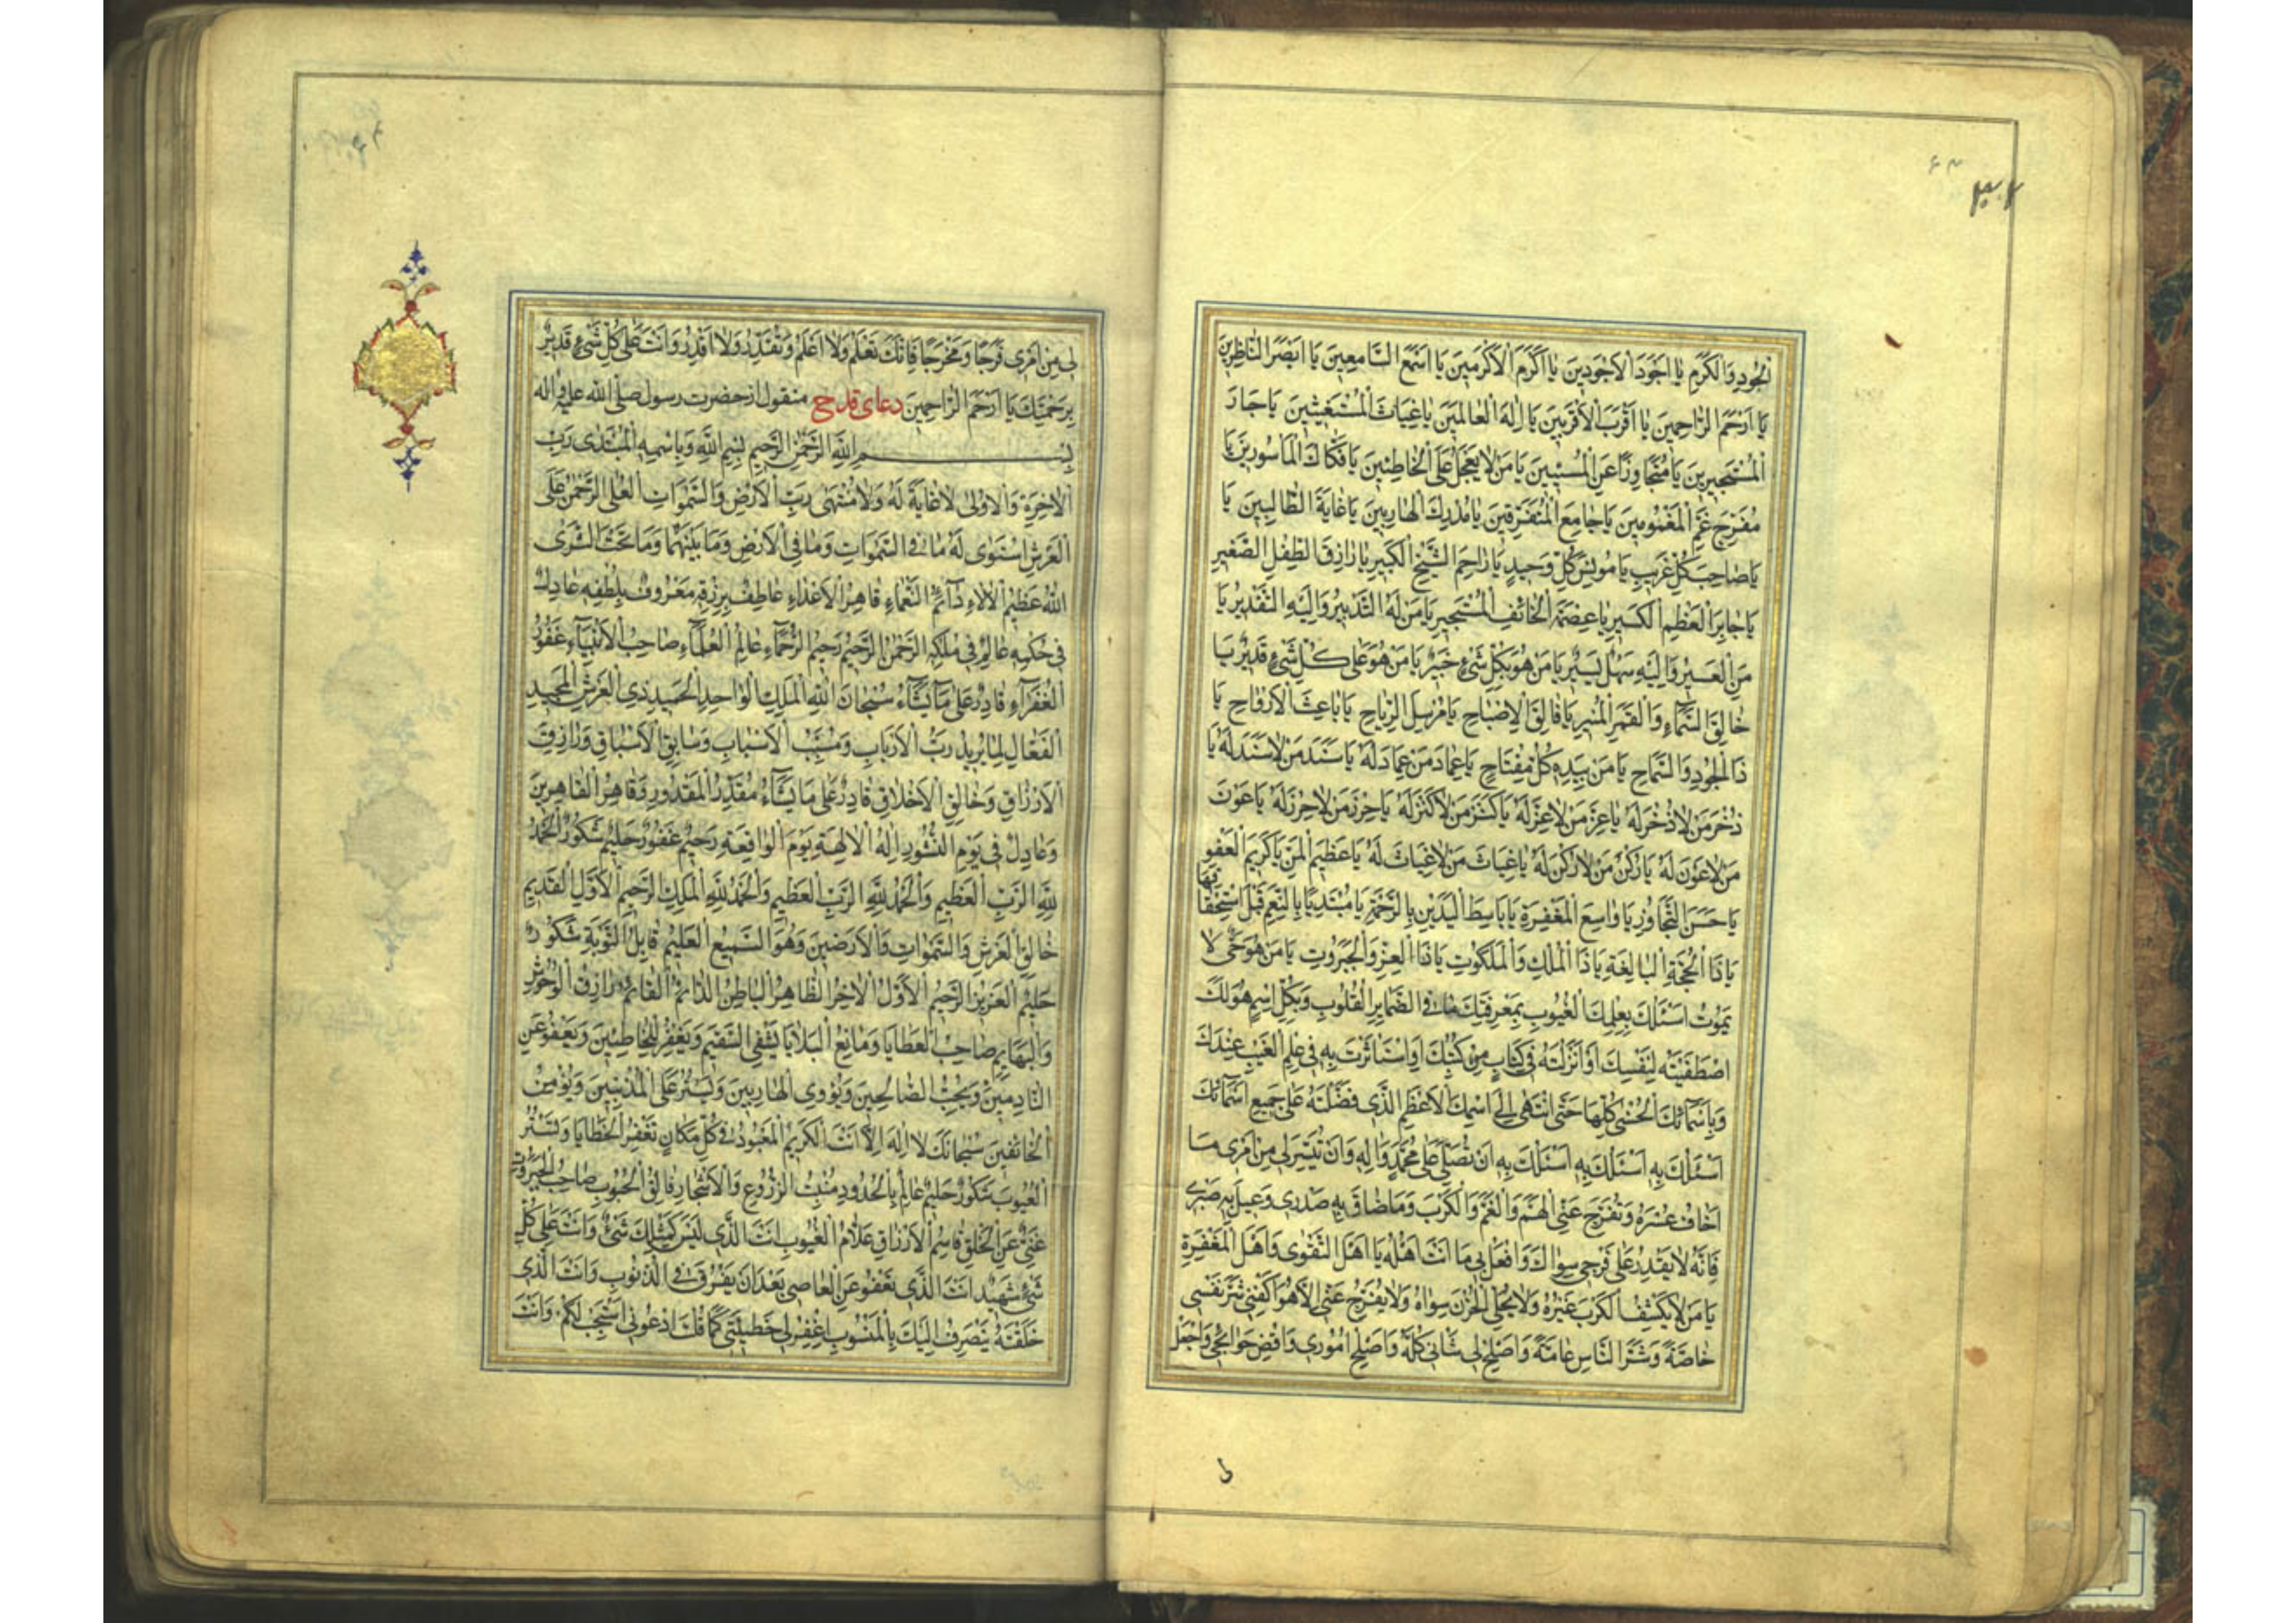 ۳۲
۶۳
الْجُودِ وَالْكَرَمِ يَا اَجْوَدَ الْاَجْوَدِينَ يَا اَكْرَمَ الْاَكْرَمِينَ يَا اَسْمَعَ السَّامِعِينَ يَا اَبْصَرَ النَّاظِرِينَ
يَا اَرْحَمَ الرَّاحِمِينَ يَا اَقْرَبَ الْاَقْرَبِينَ يَا اِلٰهَ الْعَالَمِينَ يَا غِيَاثَ الْمُسْتَغِيثِينَ يَا جَارَ
الْمُسْتَجِيرِينَ يَا مُتَجَاوِزًا عَنِ الْمُسِيئِينَ يَا مَنْ لَا يَعْجَلُ عَلَى الْخَاطِئِينَ يَا فَكَّاكَ الْمَأْسُورِينَ يَا
مُفَرِّجَ غَمِّ الْمَغْمُومِينَ يَا جَامِعَ الْمُتَفَرِّقِينَ يَا مُدْرِكَ الْهَارِبِينَ يَا غَايَةَ الطَّالِبِينَ يَا
يَا صَاحِبَ كُلِّ غَرِيبٍ يَا مُونِسَ كُلِّ وَحِيدٍ يَا رَاحِمَ الشَّيْخِ الْكَبِيرِ يَا رَازِقَ الطِّفْلِ الصَّغِيرِ
يَا جَابِرَ الْعَظْمِ الْكَسِيرِ يَا عِصْمَةَ الْخَائِفِ الْمُسْتَجِيرِ يَا مَنْ لَهُ التَّدْبِيرُ وَاِلَيْهِ التَّقْدِيرُ يَا
مَنِ الْعَسِيرُ وَاِلَيْهِ سَهْلٌ يَسِيرٌ يَا مَنْ هُوَ بِكُلِّ شَيْءٍ خَبِيرٌ يَا مَنْ هُوَ عَلَى كُلِّ شَيْءٍ قَدِيرٌ يَا
خَالِقَ السَّمَاءِ وَالْقَمَرِ الْمُنِيرِ يَا فَالِقَ الْاِصْبَاحِ يَا مُرْسِلَ الرِّيَاحِ يَا بَاعِثَ الْاَرْوَاحِ يَا
ذَا الْجُودِ وَالسَّمَاحِ يَا مَنْ بِيَدِهِ كُلُّ مِفْتَاحٍ يَا عِمَادَ مَنْ عِمَادَ لَهُ يَا سَنَدَ مَنْ لَا سَنَدَ لَهُ يَا
ذُخْرَ مَنْ لَا ذُخْرَ لَهُ يَا عِزَّ مَنْ لَا عِزَّ لَهُ يَا كَنْزَ مَنْ لَا كَنْزَ لَهُ يَا حِرْزَ مَنْ لَا حِرْزَ لَهُ يَا عَوْنَ
مَنْ لَا عَوْنَ لَهُ يَا رُكْنَ مَنْ لَا رُكْنَ لَهُ يَا غِيَاثَ مَنْ لَا غِيَاثَ لَهُ يَا عَظِيمَ الْمَنِّ يَا كَرِيمَ الْعَفْوِ
يَا حَسَنَ التَّجَاوُزِ يَا وَاسِعَ الْمَغْفِرَةِ يَا بَاسِطَ الْيَدَيْنِ بِالرَّحْمَةِ يَا مُبْتَدِيًا بِالنِّعَمِ قَبْلَ اسْتِحْقَاقِهَا
يَا ذَا الْحُجَّةِ الْبَالِغَةِ يَا ذَا الْمُلْكِ وَالْمَلَكُوتِ يَا ذَا الْعِزِّ وَالْجَبَرُوتِ يَا مَنْ هُوَ حَيٌّ لَا
يَمُوتُ اَسْئَلُكَ بِعِلْمِكَ الْغُيُوبِ بِمَعْرِفَتِكَ مَا فِي الضَّمَايِرِ الْقُلُوبِ وَبِكُلِّ اسْمٍ هُوَ لَكَ
اصْطَفَيْتَهُ لِنَفْسِكَ اَوْ اَنْزَلْتَهُ فِي كِتَابٍ مِنْ كُتُبِكَ اَوِ اسْتَأْثَرْتَ بِهِ فِي عِلْمِ الْغَيْبِ عِنْدَكَ
وَبِاَسْمَائِكَ الْحُسْنٰى كُلِّهَا حَتَّى انْتَهٰى اِلَى اسْمِكَ الْاَعْظَمِ الَّذِي فَضَّلْتَهُ عَلٰى جَمِيعِ اَسْمَائِكَ
اَسْئَلُكَ بِهِ اَسْئَلُكَ بِهِ اَسْئَلُكَ بِهِ اَنْ تُصَلِّيَ عَلٰى مُحَمَّدٍ وَاٰلِهِ وَاَنْ تُيَسِّرَ لِي مِنْ اَمْرِي مَا
اَخَافُ عُسْرَهُ وَتُفَرِّجَ عَنِّي الْهَمَّ وَالْغَمَّ وَالْكَرْبَ وَمَا ضَاقَ بِهِ صَدْرِي وَعِيلَ بِهِ صَبْرِي
فَاِنَّهُ لَا يَقْدِرُ عَلٰى فَرَجِي سِوَاكَ وَافْعَلْ بِي مَا اَنْتَ اَهْلُهُ يَا اَهْلَ التَّقْوٰى وَاَهْلَ الْمَغْفِرَةِ
يَا مَنْ لَا يَكْشِفُ الْكَرْبَ غَيْرُهُ وَلَا يُجَلِّي الْحُزْنَ سِوَاهُ وَلَا يُفَرِّجُ عَنِّي اِلَّا هُوَ اكْفِنِي شَرَّ نَفْسِي
خَاصَّةً وَشَرَّ النَّاسِ عَامَّةً وَاَصْلِحْ لِي شَأْنِي كُلَّهُ وَاَصْلِحْ اُمُورِي وَاقْضِ حَوَائِجِي وَاجْعَلْ
لِي مِنْ اَمْرِي فَرَجًا وَمَخْرَجًا فَاِنَّكَ تَعْلَمُ وَلَا اَعْلَمُ وَتَقْدِرُ وَلَا اَقْدِرُ وَاَنْتَ عَلٰى كُلِّ شَيْءٍ قَدِيرٌ
بِرَحْمَتِكَ يَا اَرْحَمَ الرَّاحِمِينَ دعای قدح منقول از حضرت رسول صلّی الله علیه واله
بِسْمِ اللهِ الرَّحْمٰنِ الرَّحِيمِ بِسْمِ اللهِ وَبِاسْمِهِ الْمُبْتَدٰى رَبِّ
الْاٰخِرَةِ وَالْاُولٰى لَا غَايَةَ لَهُ وَلَا مُنْتَهٰى رَبِّ الْاَرْضِ وَالسَّمٰوَاتِ الْعُلٰى الرَّحْمٰنُ عَلَى
الْعَرْشِ اسْتَوٰى لَهُ مَا فِي السَّمٰوَاتِ وَمَا فِي الْاَرْضِ وَمَا بَيْنَهُمَا وَمَا تَحْتَ الثَّرٰى
اللهُ عَظِيمُ الْاٰلَاءِ دَائِمُ النَّعْمَاءِ قَاهِرُ الْاَعْدَاءِ عَاطِفٌ بِرِزْقِهِ مَعْرُوفٌ بِلُطْفِهِ عَادِلٌ
فِي حُكْمِهِ عَالِمٌ فِي مُلْكِهِ الرَّحْمٰنُ الرَّحِيمُ رَحِيمُ الرُّحَمَاءِ عَالِمُ الْعُلَمَاءِ صَاحِبُ الْاَنْبِيَاءِ غَفُورُ
الْغُفَرَاءِ قَادِرٌ عَلٰى مَا يَشَاءُ سُبْحَانَ اللهِ الْمَلِكِ الْوَاحِدِ الْحَمِيدِ ذِي الْعَرْشِ الْمَجِيدِ
الْفَعَّالِ لِمَا يُرِيدُ رَبُّ الْاَرْبَابِ وَمُسَبِّبُ الْاَسْبَابِ وَسَابِقُ الْاَسْبَاقِ وَرَازِقُ
الْاَرْزَاقِ وَخَالِقُ الْاَخْلَاقِ قَادِرٌ عَلٰى مَا يَشَاءُ مُقَدِّرُ الْمَقْدُورِ وَقَاهِرُ الْقَاهِرِينَ
وَعَادِلٌ فِي يَوْمِ النُّشُورِ اِلٰهُ الْاٰلِهَةِ يَوْمَ الْوَاقِعَةِ رَحِيمٌ غَفُورٌ حَلِيمٌ شَكُورٌ الْحَمْدُ
لِلّٰهِ الرَّبِّ الْعَظِيمِ وَالْحَمْدُ لِلّٰهِ الرَّبِّ الْعَظِيمِ وَالْحَمْدُ لِلّٰهِ الْمَلِكِ الرَّحِيمِ الْاَوَّلِ الْقَدِيمِ
خَالِقِ الْعَرْشِ وَالسَّمٰوَاتِ وَالْاَرَضِينَ وَهُوَ السَّمِيعُ الْعَلِيمُ قَابِلُ التَّوْبَةِ شَكُورٌ
حَلِيمٌ الْعَزِيزُ الرَّحِيمُ الْاَوَّلُ الْاٰخِرُ الظَّاهِرُ الْبَاطِنُ الدَّائِمُ الْقَائِمُ رَازِقُ الْوُحُوشِ
وَالْبَهَايِمِ صَاحِبُ الْعَطَايَا وَمَانِعُ الْبَلَايَا يَشْفِي السَّقِيمَ وَيَغْفِرُ لِلْخَاطِئِينَ وَيَعْفُو عَنِ
النَّادِمِينَ وَيُحِبُّ الصَّالِحِينَ وَيُؤْوِي الْهَارِبِينَ وَيَسْتُرُ عَلَى الْمُذْنِبِينَ وَيُؤْمِنُ
الْخَائِفِينَ سُبْحَانَكَ لَا اِلٰهَ اِلَّا اَنْتَ الْكَرِيمُ الْمَعْبُودُ فِي كُلِّ مَكَانٍ تَغْفِرُ الْخَطَايَا وَتَسْتُرُ
الْعُيُوبَ شَكُورٌ حَلِيمٌ عَالِمٌ بِالْحُدُودِ مُنْبِتُ الزُّرُوعِ وَالْاَشْجَارِ فَالِقُ الْحُبُوبِ صَاحِبُ الْجَبَرُوتِ
غَنِيٌّ عَنِ الْخَلْقِ قَاسِمُ الْاَرْزَاقِ عَلَّامُ الْغُيُوبِ اَنْتَ الَّذِي لَيْسَ كَمِثْلِكَ شَيْءٌ وَاَنْتَ عَلٰى كُلِّ
شَيْءٍ شَهِيدٌ اَنْتَ الَّذِي تَعْفُو عَنِ الْعَاصِي بَعْدَ اَنْ يَغْرَقَ فِي الذُّنُوبِ وَاَنْتَ الَّذِي
خَلَقْتَهُ يَنْصَرِفُ اِلَيْكَ بِالْمَنْسُوبِ اغْفِرْ لِي خَطِيئَتِي كَمَا قُلْتَ ادْعُونِي اَسْتَجِبْ لَكُمْ وَاَنْتَ